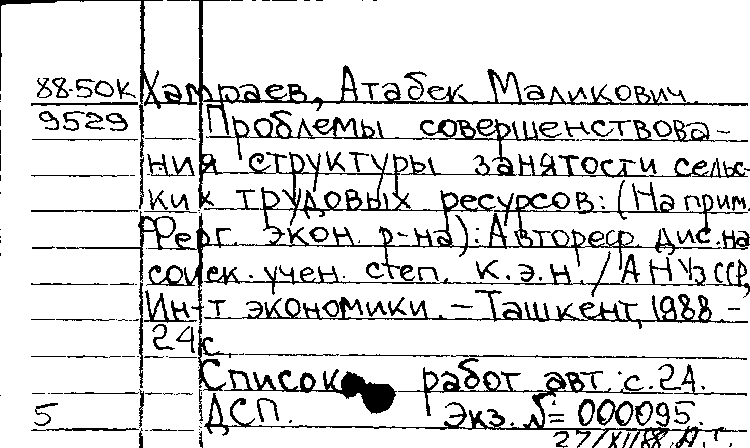 88-50К Хамраев, Атабек Маликович.
9529 Проблемы совершенствова-
ния структуры занятости сельс-
ких трудовых ресурсов: (На прим.
Ферг. экон. р-на): Автореф. дис. на
соиск. учен. степ. к.э.н. / АН УзССР,
Ин-т экономики. - Ташкент, 1988 -
24 с.
Список работ авт.: с. 24.
5 ДСП. Экз. № 000095.
27/XII 88